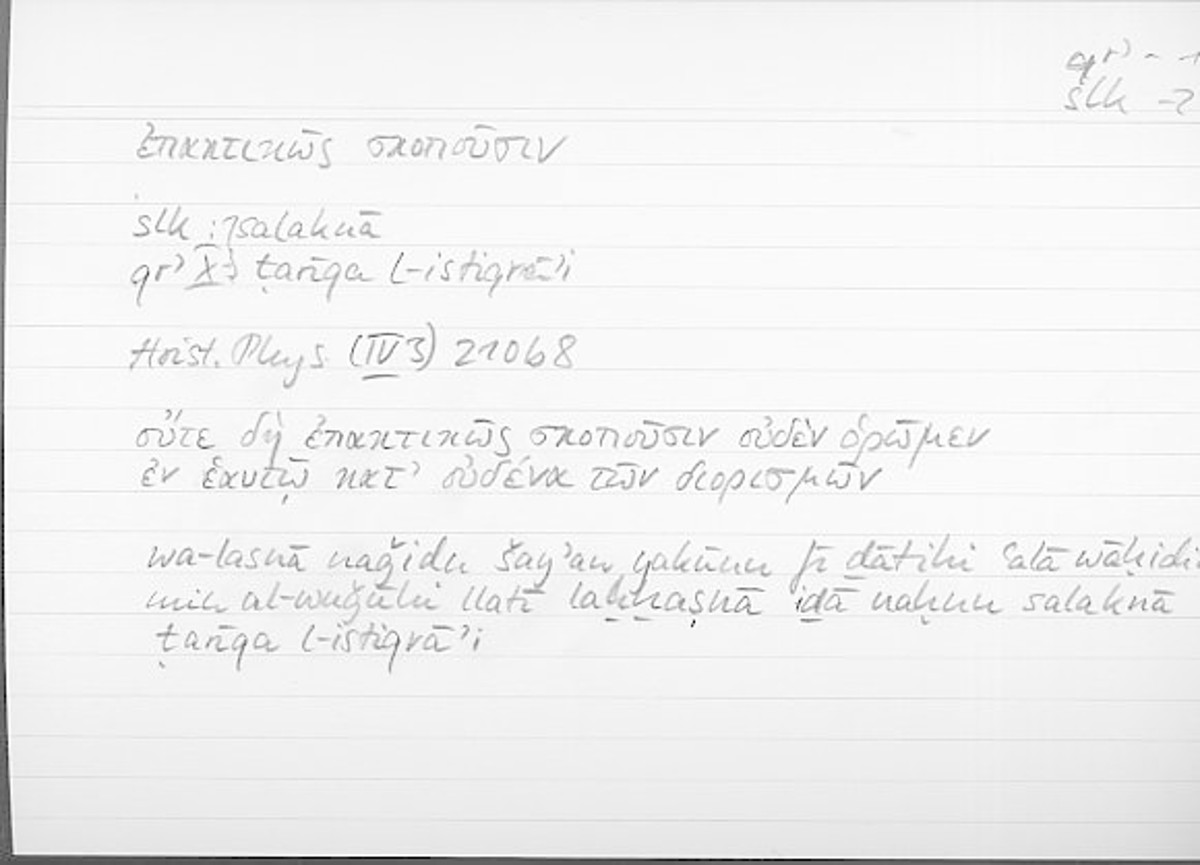 qrʾ -
slk -2
ἐπακτικῶς σκοποῦσιν
slk : salaknā
qrʾ X ṭarīqa l-istiqrāʾi
Arist. Phys. (IV 3) 210b8
οὔτε δὴ ἐπακτικῶς σκοποῦσιν οὐδὲν ὁρῶμεν
ἐν ἑαυτῷ κατ’ οὐδένα τῶν διορισμῶν
wa-lasnā naǧidu šayʾan yakūnu fī ḏātihi ʿalā wāḥidi
min al-wuǧūhi llatī laḫḫaṣnā iḏā naḥnu salaknā
ṭarīqa l-istiqrāʾi